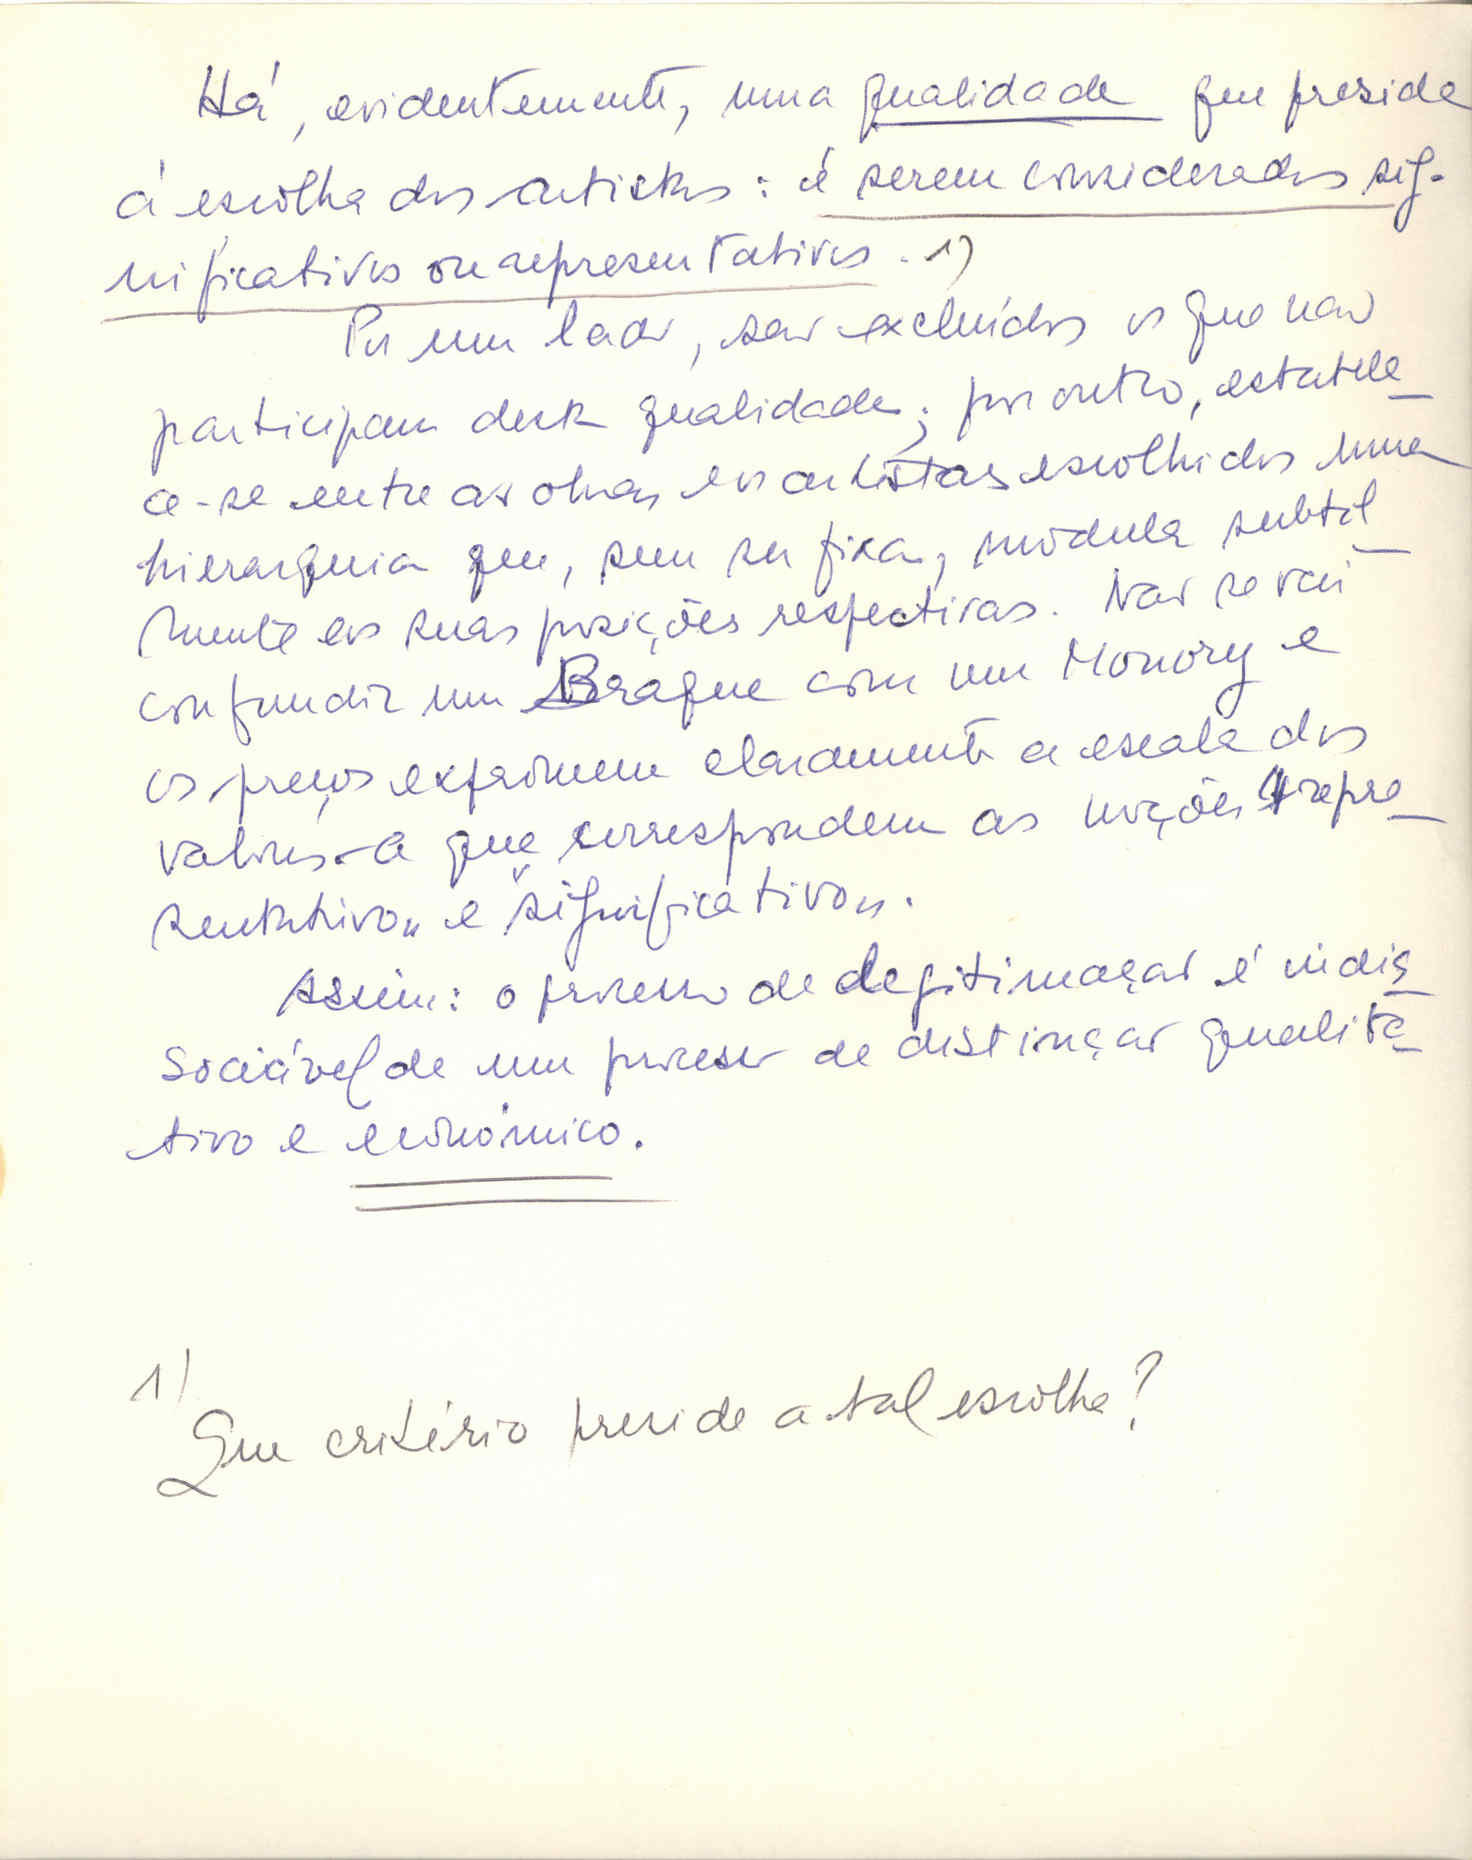 Há, evidentemente, uma qualidade que preside
à escolha dos artistas: é serem considerados sig-
nificativos ou representativos. 1)
Por um lado, são excluídos os que não
participam desta qualidade; por outro, estabele
ce-se entre as obras e os artistas escolhidos uma
hierarquia que, sem ser fixa, modula subtil
mente as suas posições respectivas. Não se vai
confundir um Braque com um Monory e
os preços exprimem claramente a escala dos
valores a que correspondem as noções "repre
sentativo" e "significativo".
Assim: o processo de legitimação é indis
sociável de um processo de distinção qualita
tivo e económico.
1)
Que critério preside a tal escolha?